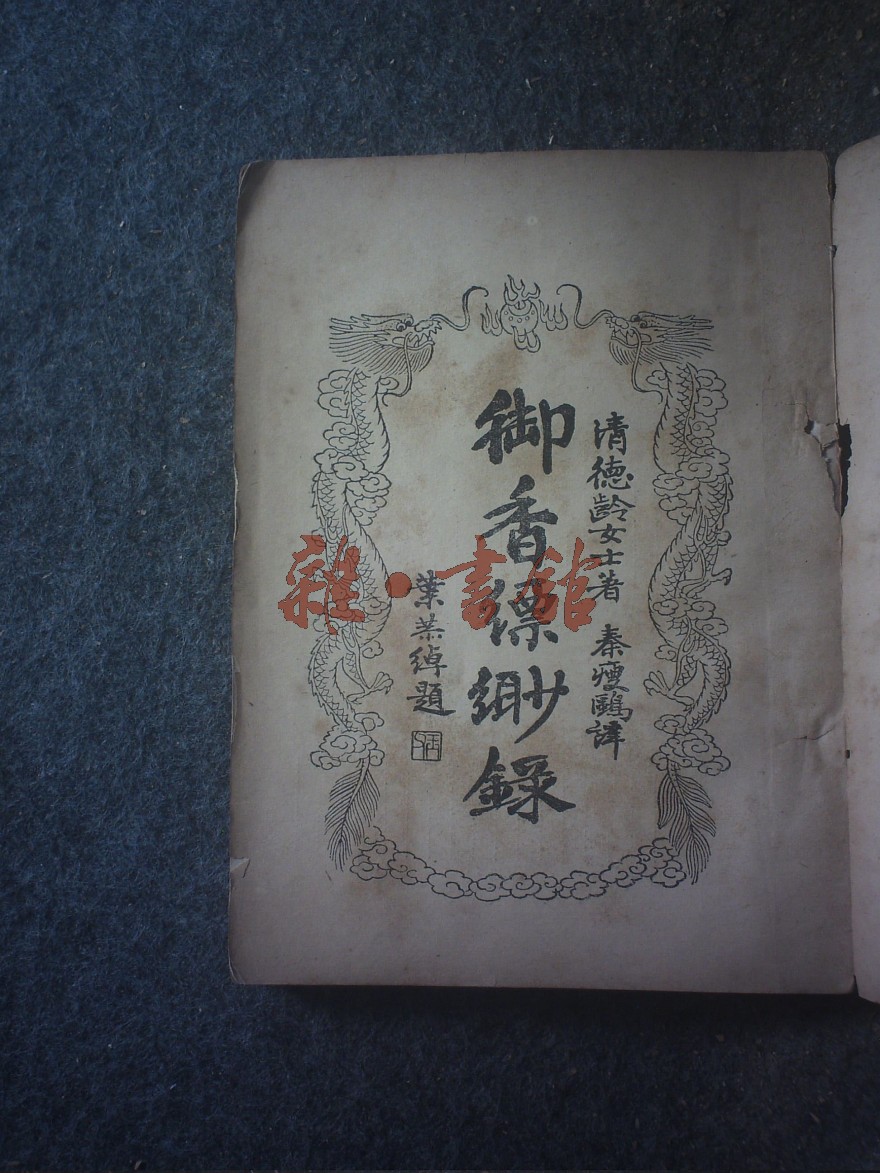 清德齡女士著 秦瘦鷗譯
御香縹緲錄
葉恭綽題
雜·書館